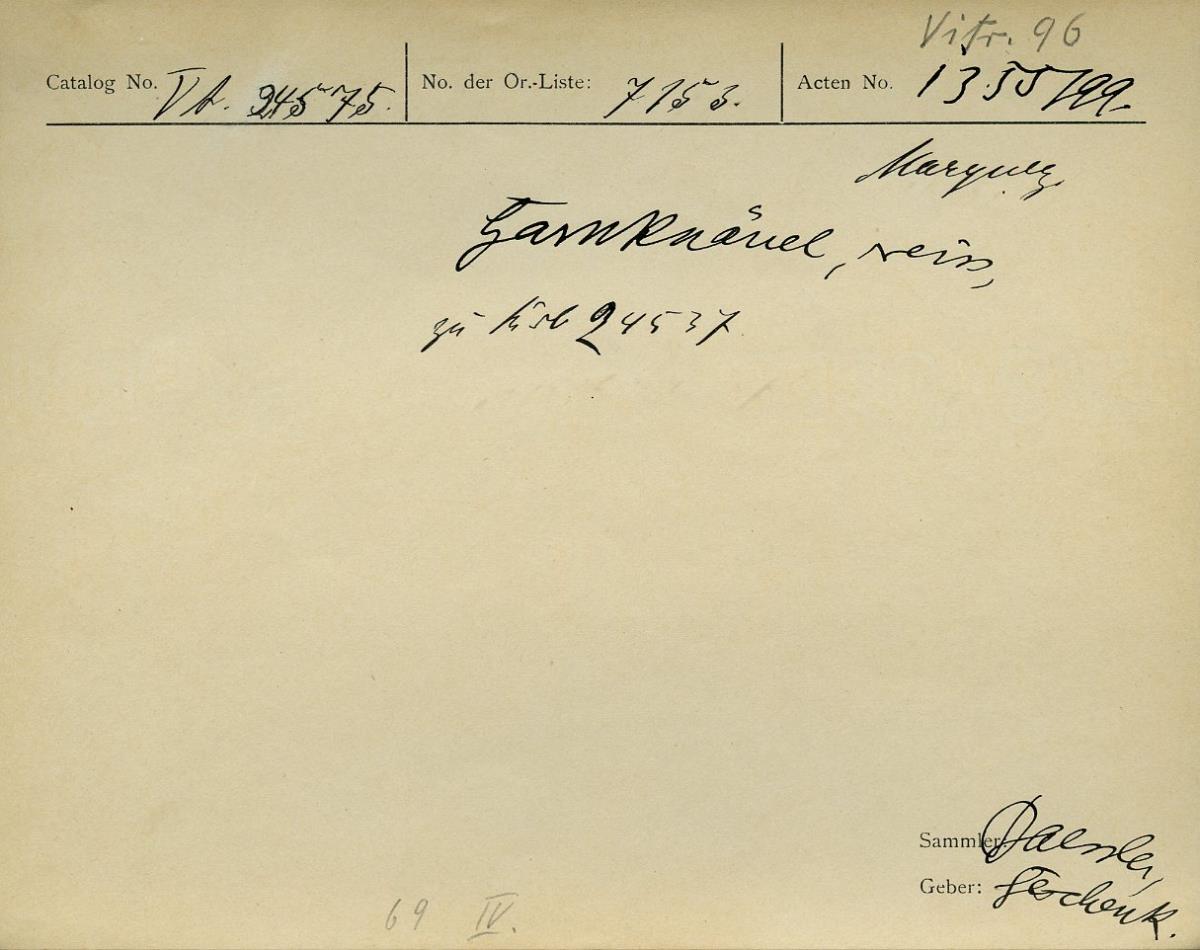 Vitr. 96
Catalog No. VA. 24575. No. der Or.-Liste: 7153. Acten No. 1355/99.
Marquez,
Garnknäuel, weiss,
zu Krb 24537
Sammler: Baessler,
Geber: Geschenk.
69 IV.